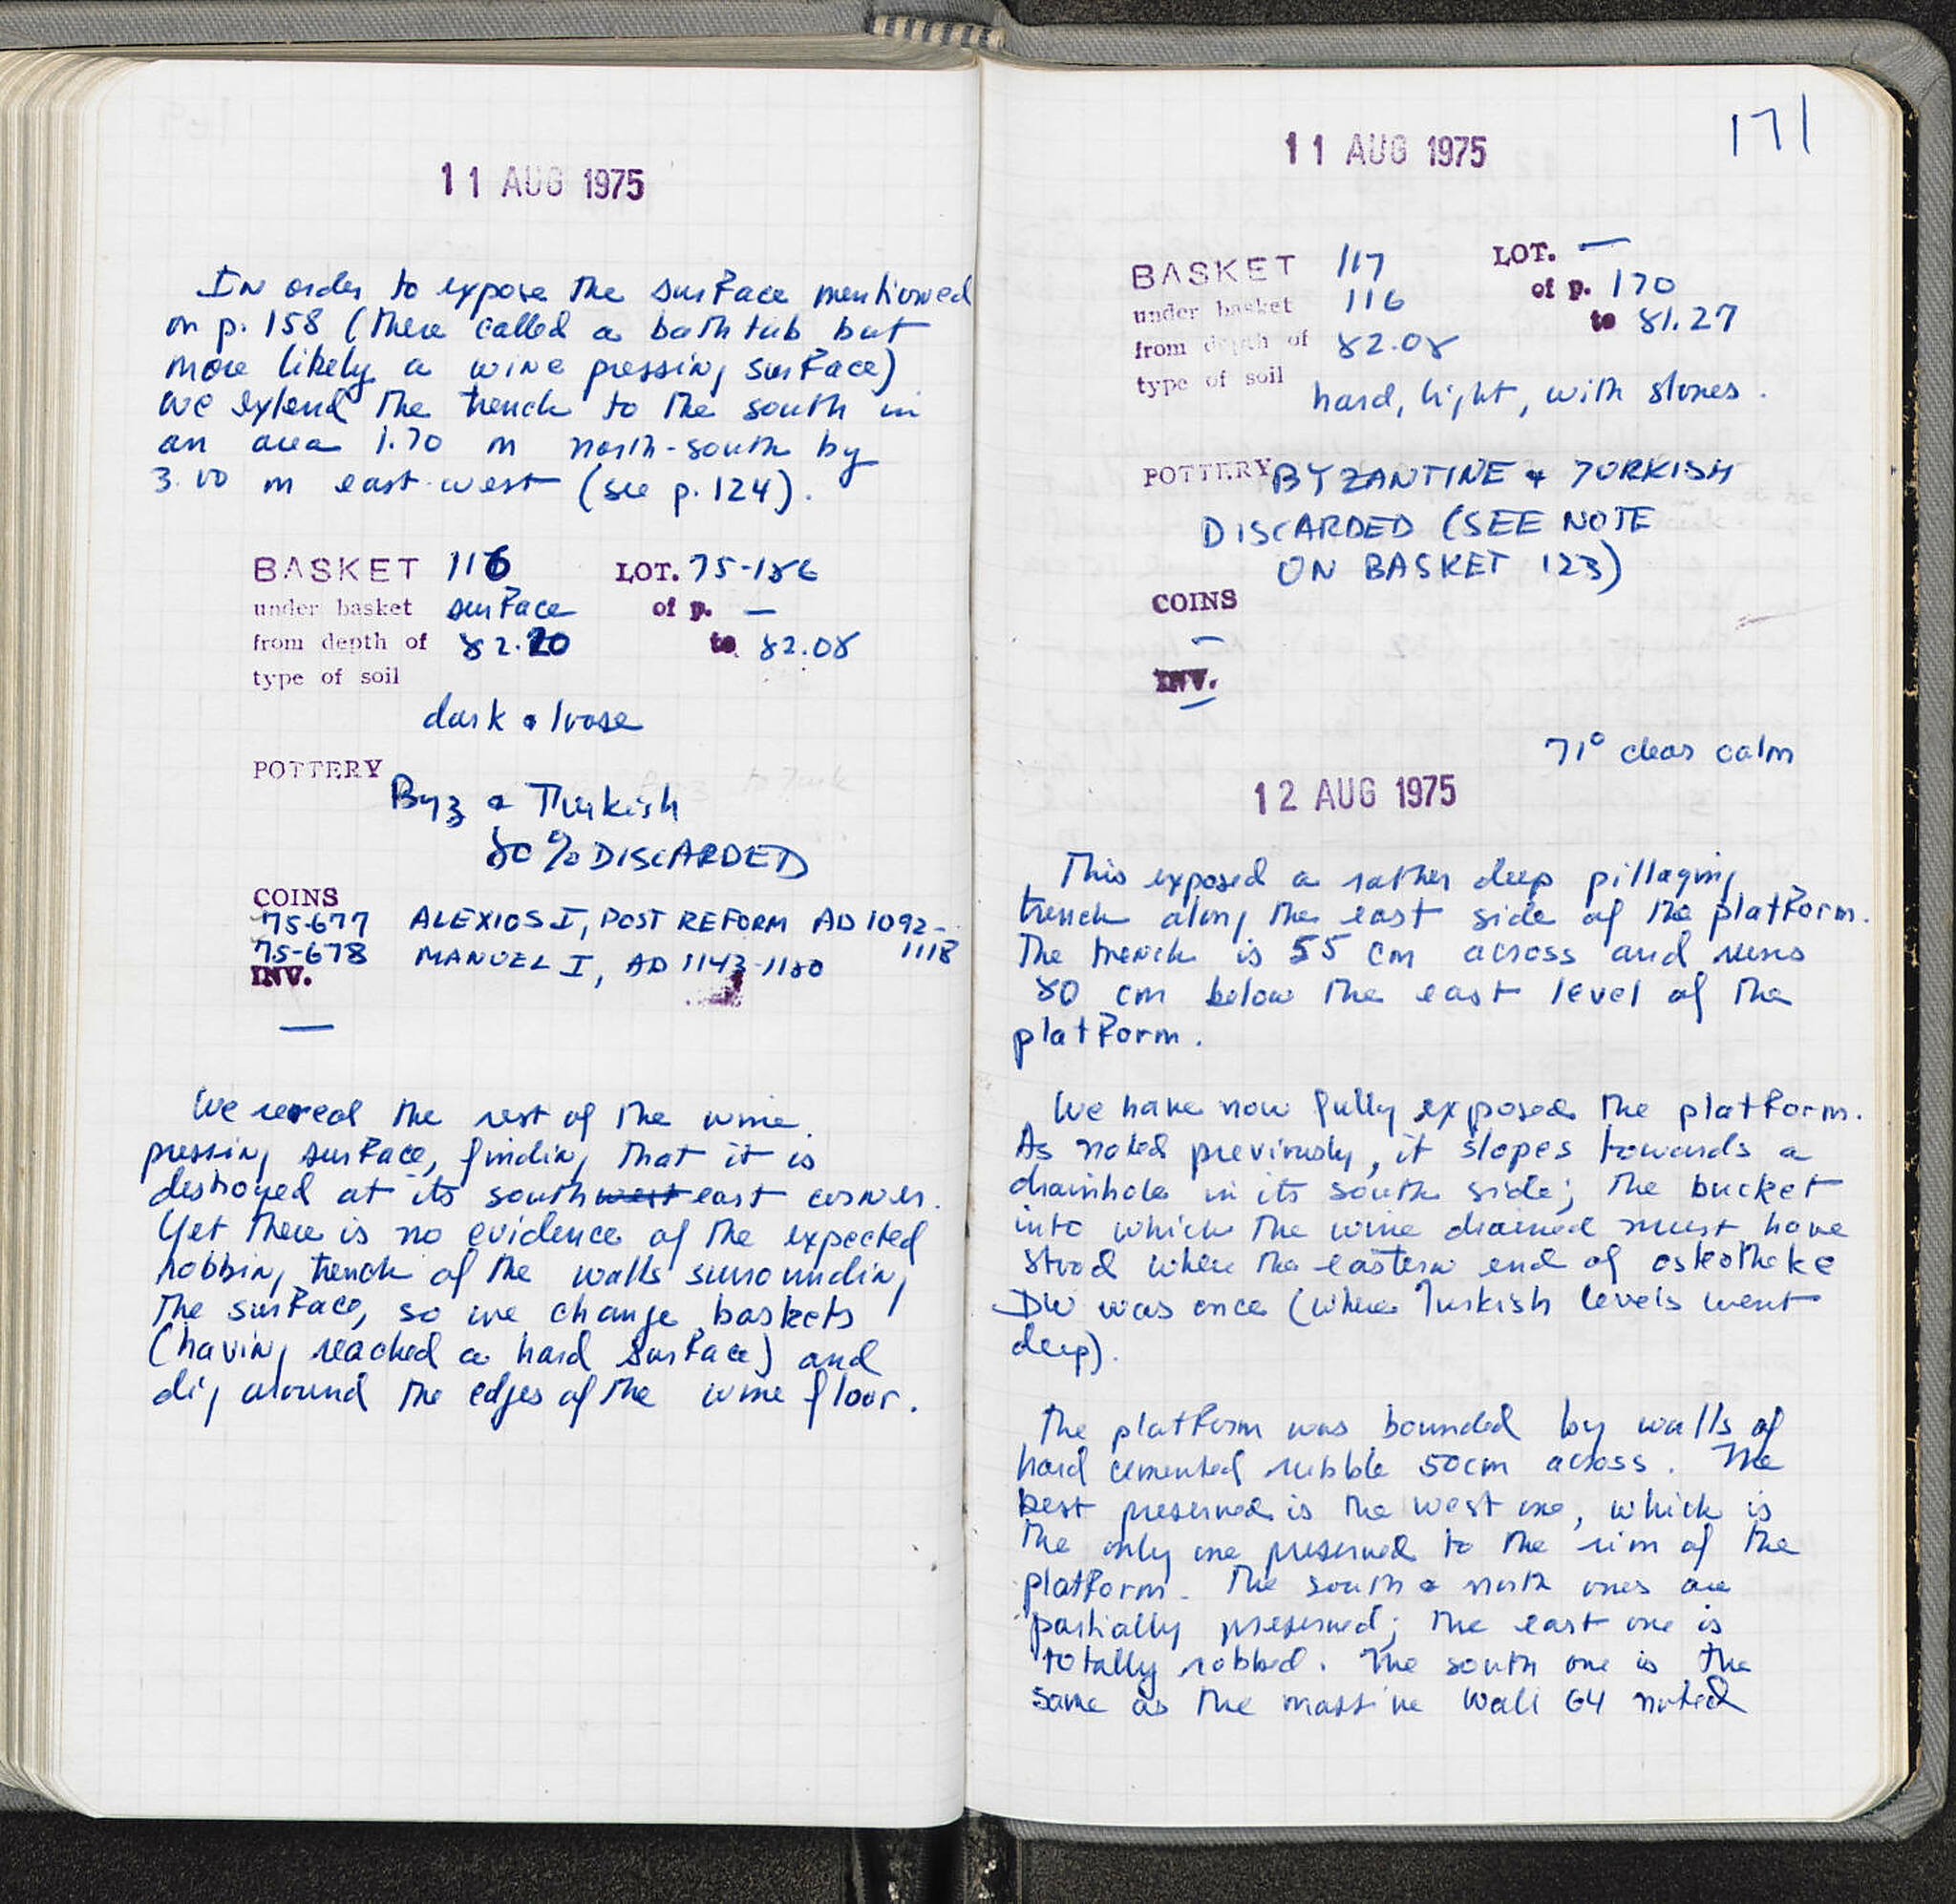 11 AUG 1975
In order to expose the surface mentioned
on p. 158 (there called a bathtub but
more likely a wine pressing surface)
we extend the trench to the south in
an area 1.70 m north-south by
3.00 m east-west (see p. 124).
BASKET 116 LOT. 75-186
under basket surface of p. —
from depth of 82.20 to 82.08
type of soil
dark & loose
POTTERY
Byz & Turkish
80% DISCARDED
COINS
75-677 ALEXIOS I, POST REFORM AD 1092-
1118
75-678 MANUEL I, AD 1143-1180
INV.
—
We reveal the rest of the wine
pressing surface, finding that it is
destroyed at its southwest east corner.
Yet there is no evidence of the expected
robbing trench of the walls surrounding
the surface, so we change baskets
(having reached a hard surface) and
dig around the edges of the wine floor.
171
11 AUG 1975
BASKET 117 LOT. —
under basket 116 of p. 170
from depth of 82.08 to 81.27
type of soil hard, light, with stones.
POTTERY BYZANTINE & TURKISH
DISCARDED (SEE NOTE
ON BASKET 123)
COINS
—
INV.
—
71° clear calm
12 AUG 1975
This exposed a rather deep pillaging
trench along the east side of the platform.
The trench is 55 cm across and runs
80 cm below the east level of the
platform.
We have now fully exposed the platform.
As noted previously, it slopes towards a
drainhole in its south side; the bucket
into which the wine drained must have
stood where the eastern end of osteotheke
DW was once (where Turkish levels went
deep).
The platform was bounded by walls of
hard cemented rubble 50cm across. The
best preserved is the west one, which is
the only one preserved to the rim of the
platform. The south & north ones are
partially preserved; the east one is
totally robbed. The south one is the
same as the massive Wall 64 noted